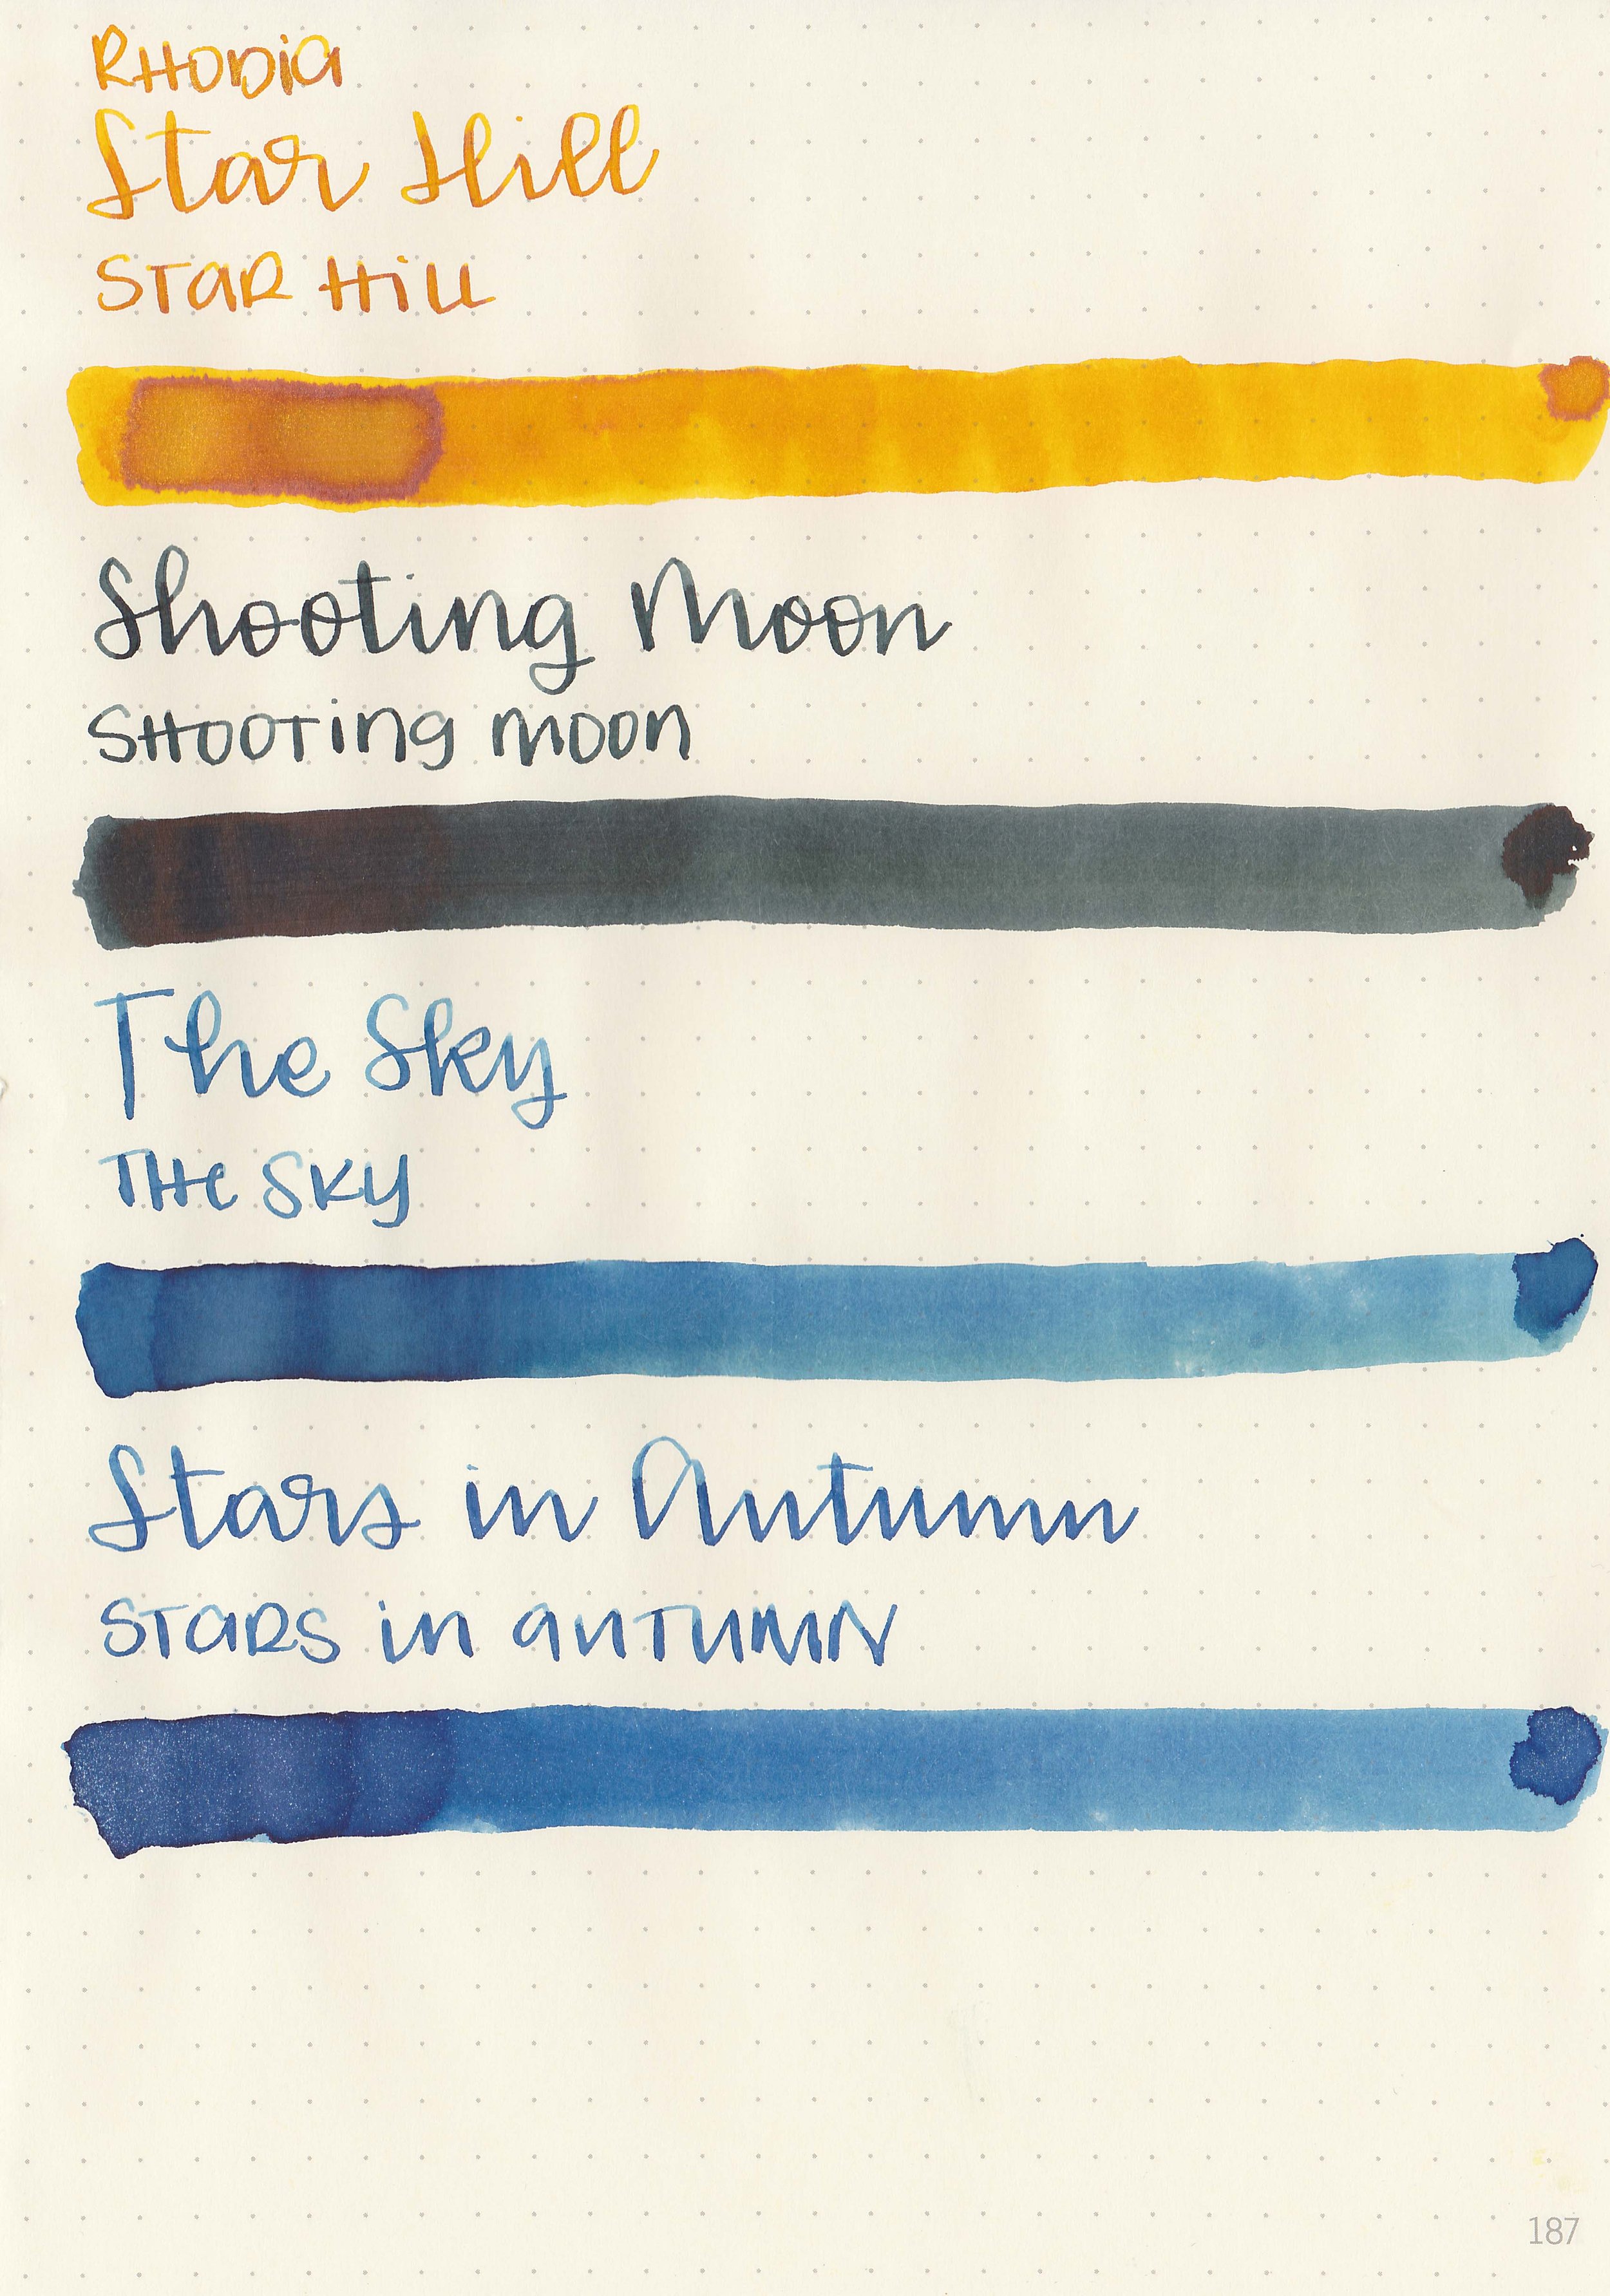 RHODia
Star Hill
STaR Hill
Shooting Moon
SHOOTing moon
The Sky
THe SKY
Stars in Autumn
STaRS in auTUMN
187